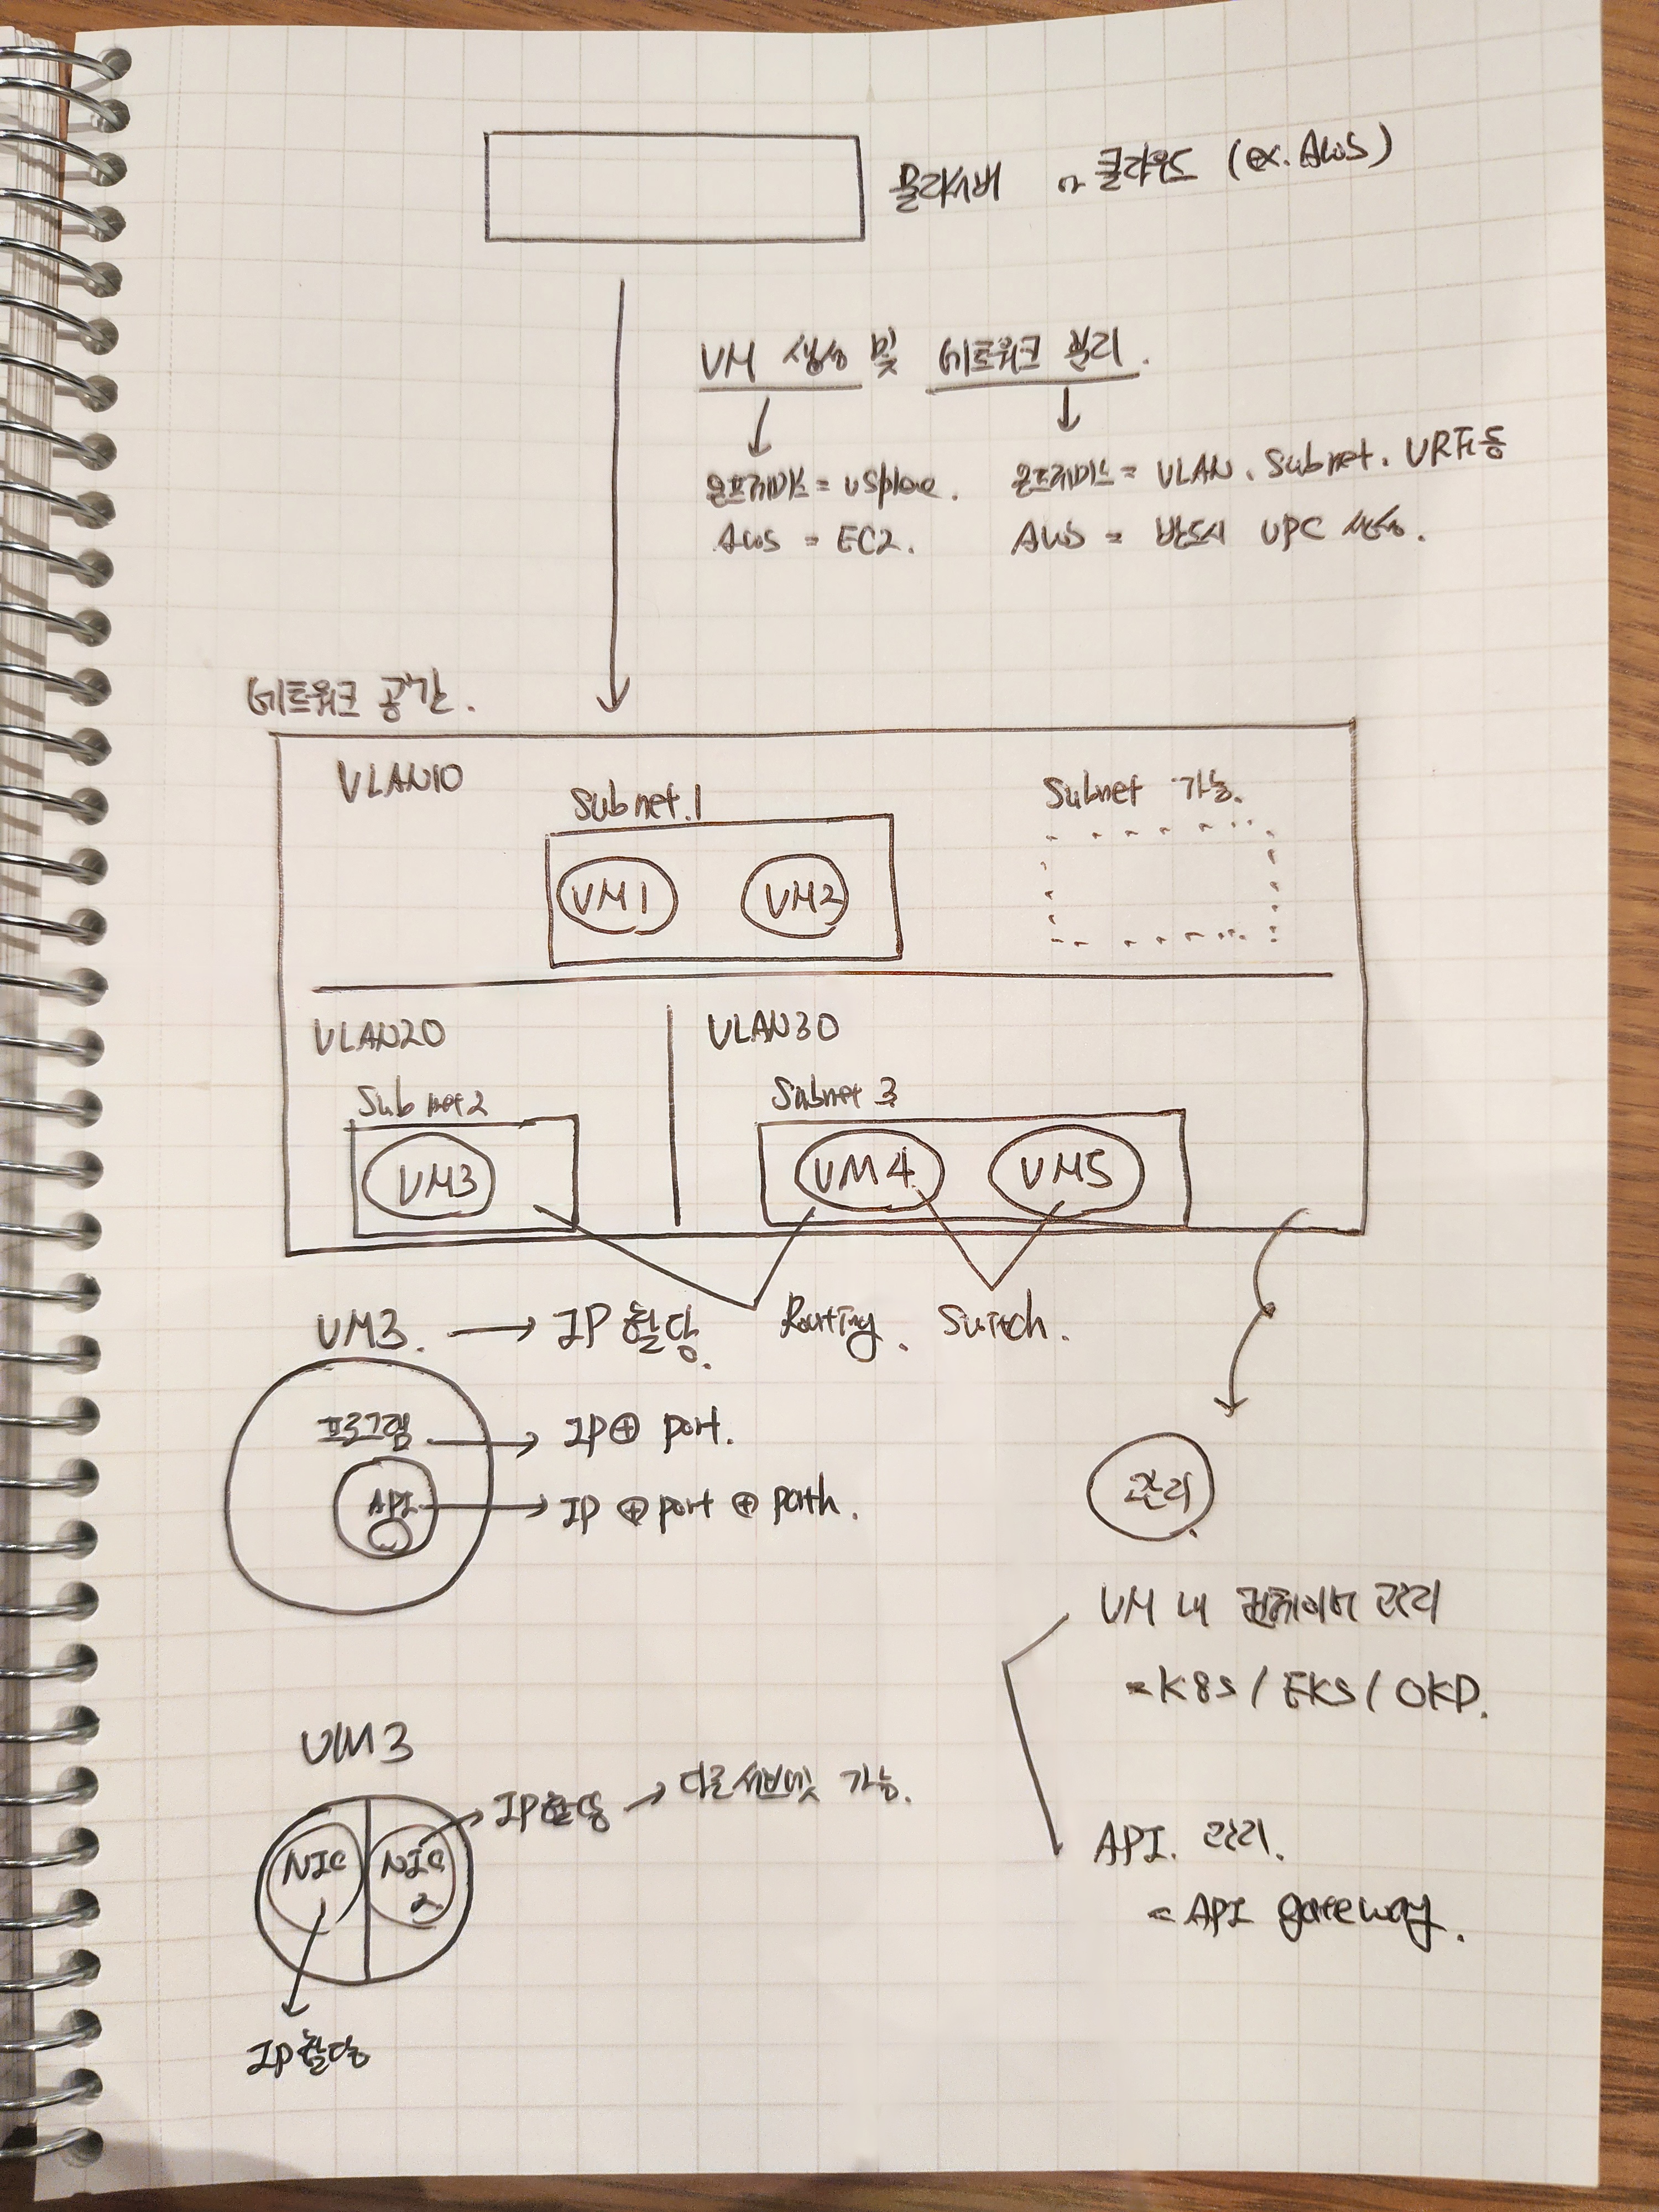 물리서버 or 클라우드 (ex. AWS)
VM 생성 및 네트워크 분리.
온프레미스 = vSphere. 온프레미스 = VLAN, Subnet, VRF 등
AWS = EC2. AWS = 반드시 VPC 생성.
네트워크 공간.
VLAN10
Subnet.1
Subnet 가능.
VM1 VM2
VLAN20 VLAN30
Subnet2 Subnet 3
VM3 VM4 VM5
VM3. → IP 할당. Routing. Switch.
프로그램 → IP ⊕ port.
API → IP ⊕ port ⊕ path.
관리.
VM 내 컨테이너 관리
= K8S / EKS / OKD.
VM3
NIC NIC 2 → IP할당 → 다른 서브넷 가능.
IP할당
API. 관리.
= API gateway.